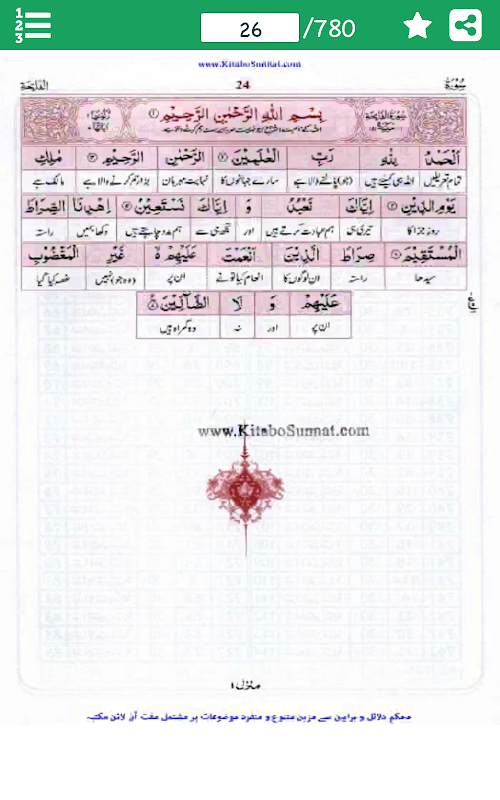 1
2
3
26 /780
www.KitaboSunnat.com
سُورَة 24 الفَاتِحَة
بِسْمِ اللّٰهِ الرَّحْمٰنِ الرَّحِيْمِ
اَلْحَمْدُ لِلّٰهِ رَبِّ الْعٰلَمِيْنَ الرَّحْمٰنِ الرَّحِيْمِ مٰلِكِ
تمام تعریفیں اللہ ہی کیلئے ہیں (جو) پالنے والا ہے سارے جہانوں کا نہایت مہربان بڑا رحم کرنے والا ہے مالک ہے
يَوْمِ الدِّيْنِ اِيَّاكَ نَعْبُدُ وَ اِيَّاكَ نَسْتَعِيْنُ اِهْدِنَا الصِّرَاطَ
روزِ جزا کا تیری ہی ہم عبادت کرتے ہیں اور تجھی سے ہم مدد چاہتے ہیں دکھا ہمیں راستہ
الْمُسْتَقِيْمَ صِرَاطَ الَّذِيْنَ اَنْعَمْتَ عَلَيْهِمْ غَيْرِ الْمَغْضُوْبِ
سیدھا راستہ ان لوگوں کا انعام کیا تو نے ان پر (وہ جو) نہیں غصہ کیا گیا
عَلَيْهِمْ وَ لَا الضَّآلِّيْنَ
ان پر اور نہ وہ گمراہ ہیں
www.KitaboSunnat.com
منزل ۱
محکم دلائل و براہین سے مزین متنوع و منفرد موضوعات پر مشتمل مفت آن لائن مکتبہ